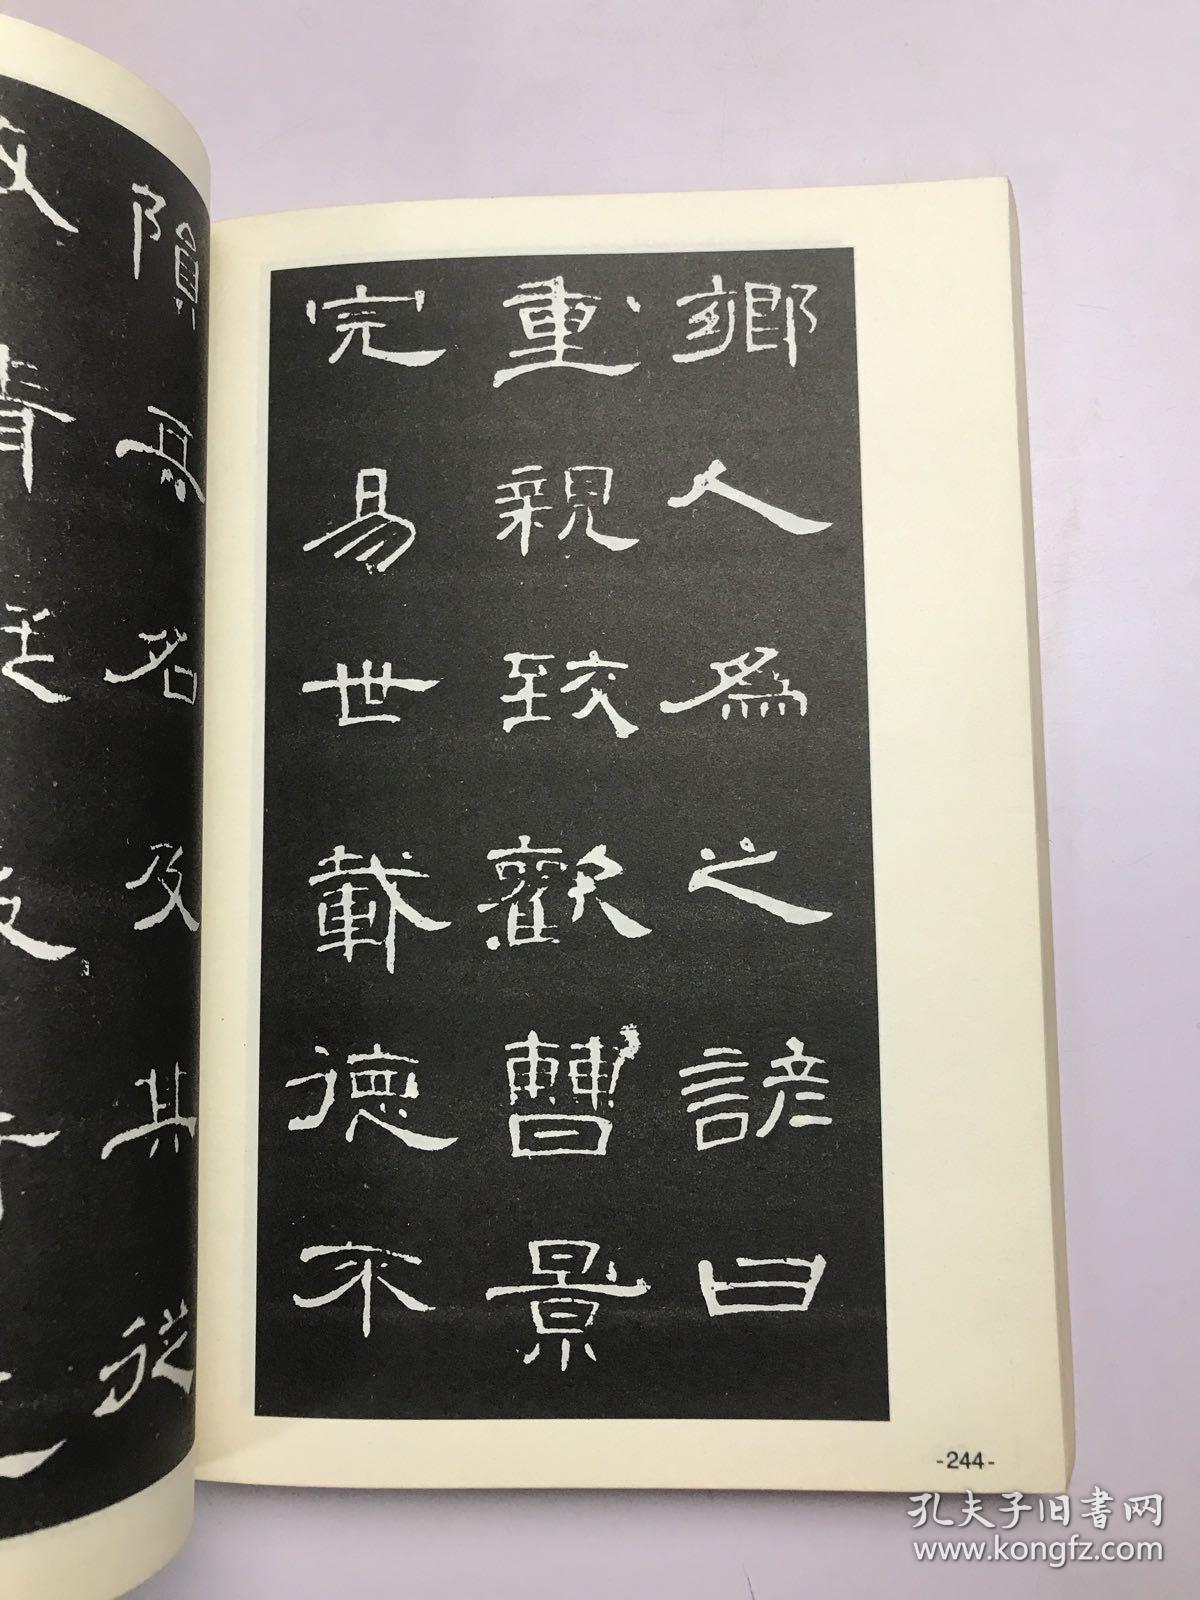 鄉人為之諺曰
重親致歡曹景
完易世載德不
隕其名及其從
-244-
孔夫子旧书网
www.kongfz.com